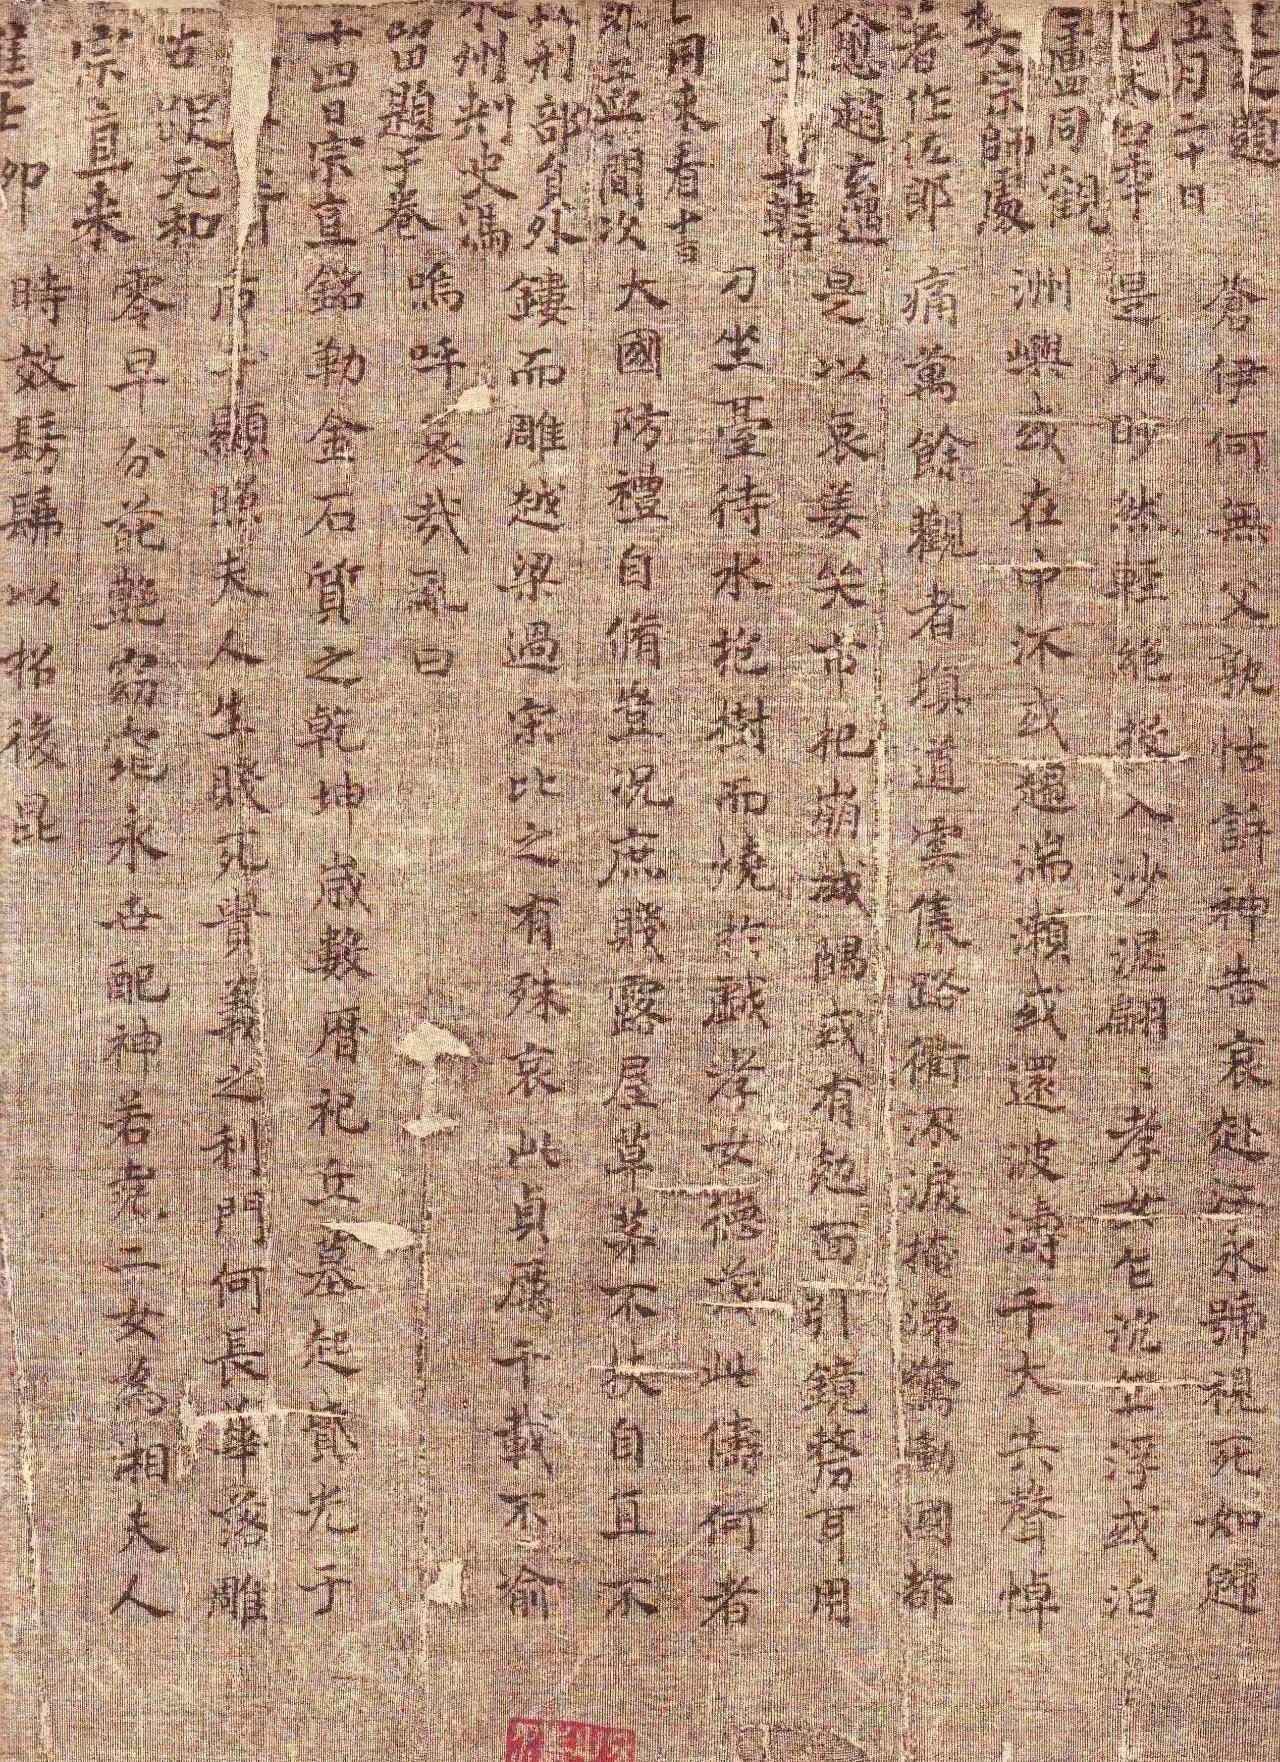 之題
五月二十日
元和四年
盧同觀
樊宗師處
著作佐郎
愈趙玄遇
博士韓
同來看
間次
刑部員外
州刺史馮
留題于卷
十四日宗直
元和
宗直来
蒼伊何無父孰怙訴神告哀赴江永號視死如歸
是以眇然輕絕投入沙泥翩〻孝女乍沉乍浮或泊
洲嶼或在中流或趨湍瀨或還波濤千夫失聲悼
痛萬餘觀者填道雲集路衢流淚掩涕驚動國都
是以哀姜哭市杞崩城隅或有剋面引鏡剺耳用
刀坐臺待水抱樹而燒於戲孝女德茂此儔何者
大國防禮自脩豈況庶賤露屋草茅不扶自直不
鏤而雕越梁過宋比之有殊哀此貞厲千載不渝
嗚呼哀哉亂曰
銘勒金石質之乾坤歲數曆祀丘墓起墳光于
后土顯照夫人生賤死貴義之利門何長華落雕
零早分葩艷窈窕永世配神若堯二女為湘夫人
時效髣髴以招後昆